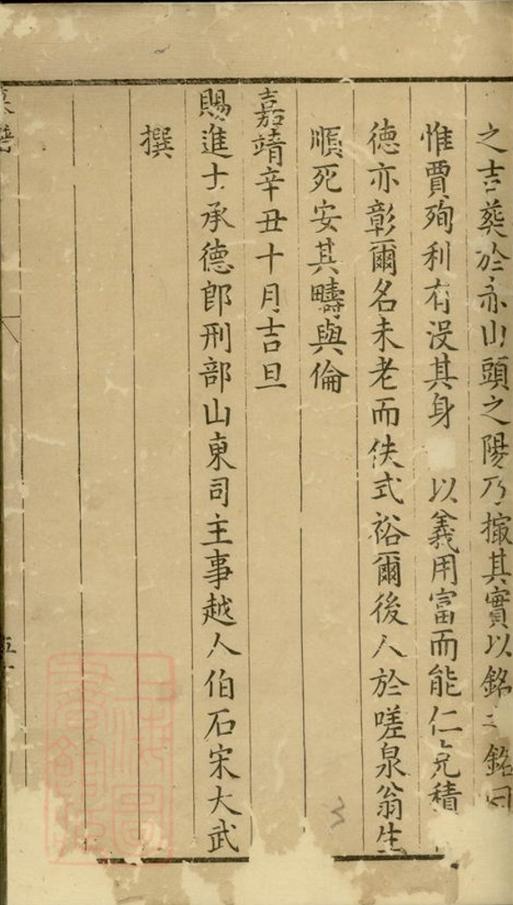 之吉葬於赤山頭之陽乃撮其實以銘之銘曰
惟賈殉利有沒其身 以義用富而能仁 積
德亦彰爾名未老而佚式裕爾後人於嗟泉翁生
順死安其疇與倫
嘉靖辛丑十月吉旦
賜進士承德郎刑部山東司主事越人伯石宋大武
撰